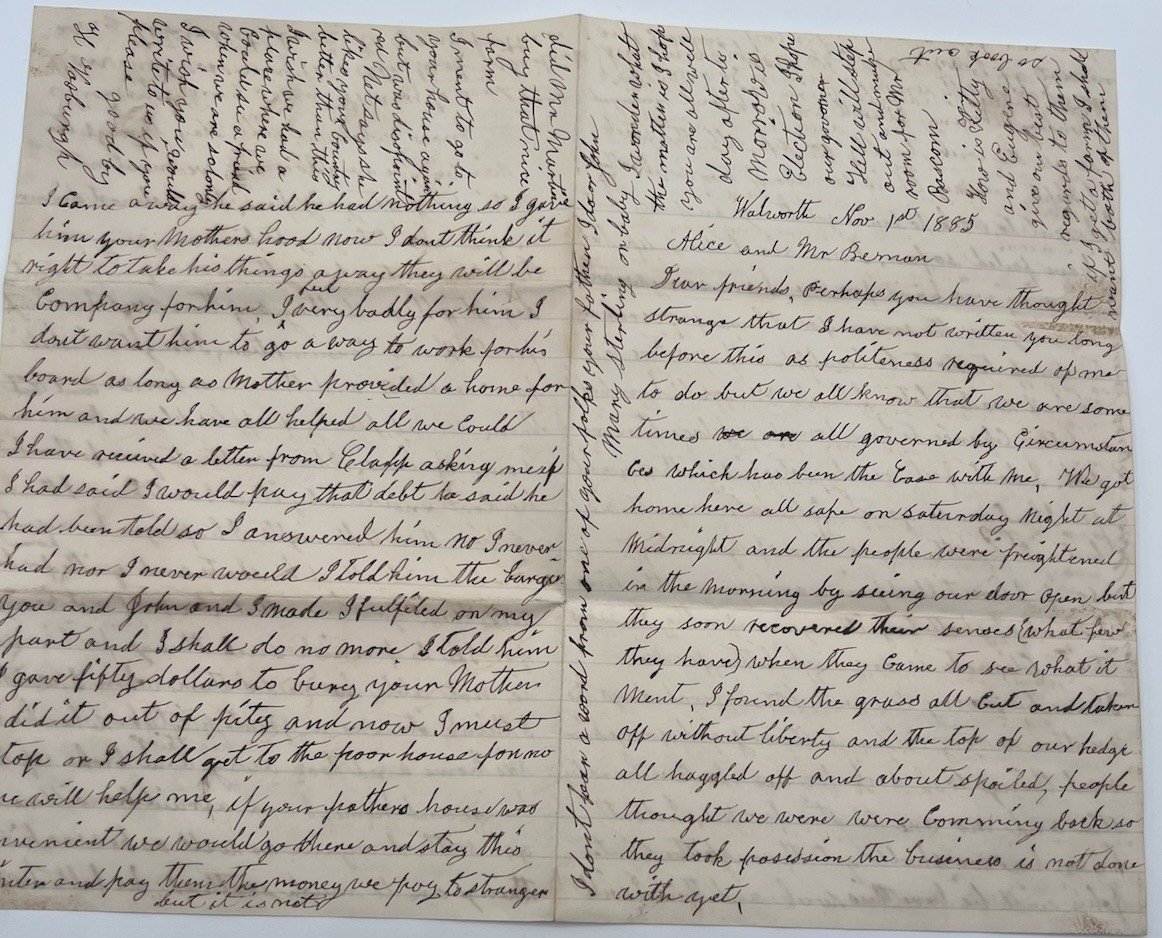 Walworth Nov. 1st 1885
Alice and Mr Beman
Dear friends, Perhaps you have thought
strange that I have not written you long
before this as politeness required of me
to do but we all know that we are some
times we are all governed by Circumstan
ces which has been the Case with me, We got
home here all safe on Saturday Night at
Midnight and the people were freightened
in the Morning by seeing our door open but
they soon recovered their senses (what few
they have) when they Came to see what it
Ment, I found the grass all Cut and taken
off without liberty and the top of our hedge
all haggled off and about spoiled, people
thought we were were Comming back so
they took posession the business is not done
with yet,
I Came away he said he had nothing so I gave
him your Mothers hood now I dont think it
right to take his things away they will be
Company for him I feel very badly for him I
dont want him to go away to work for his
board as long as Mother provided a home for
him and we have all helped all we Could
I have recieved a letter from Clapp asking me if
I had said I would pay that debt he said he
had been told so I answered him no I never
had nor I never would I told him the bargin
you and John and I made I fulfiled on my
part and I shall do no more I told him
I gave fifty dollars to bury your Mother
did it out of pity and now I must
top or I shall get to the poor house for no
will help me, if your fathers house was
nvenient we would go there and stay this
nter and pay them the money we pay to stranger
but it is not
did Mr Martin
buy that nice
farm
I ment to go to
your house again
but was disapointed
Nat says he
likes your Country
better than this
I wish we had a
place where we
Could see a friend
when we are so lonly
I wish you would
write to us if you
please good by
H
I dont hear a word from one of your folks your father Idan John
Mary Sterling or baby I wonder what
the matter is I hope
you are all well
day after to
Morrow is
Election I hope
our governor
Hill will step
out and make
room for Mr
Bascom
How is Kitty
and Eugene
give my best
regards to them
if I get a farm I shall
want both of them
so look out